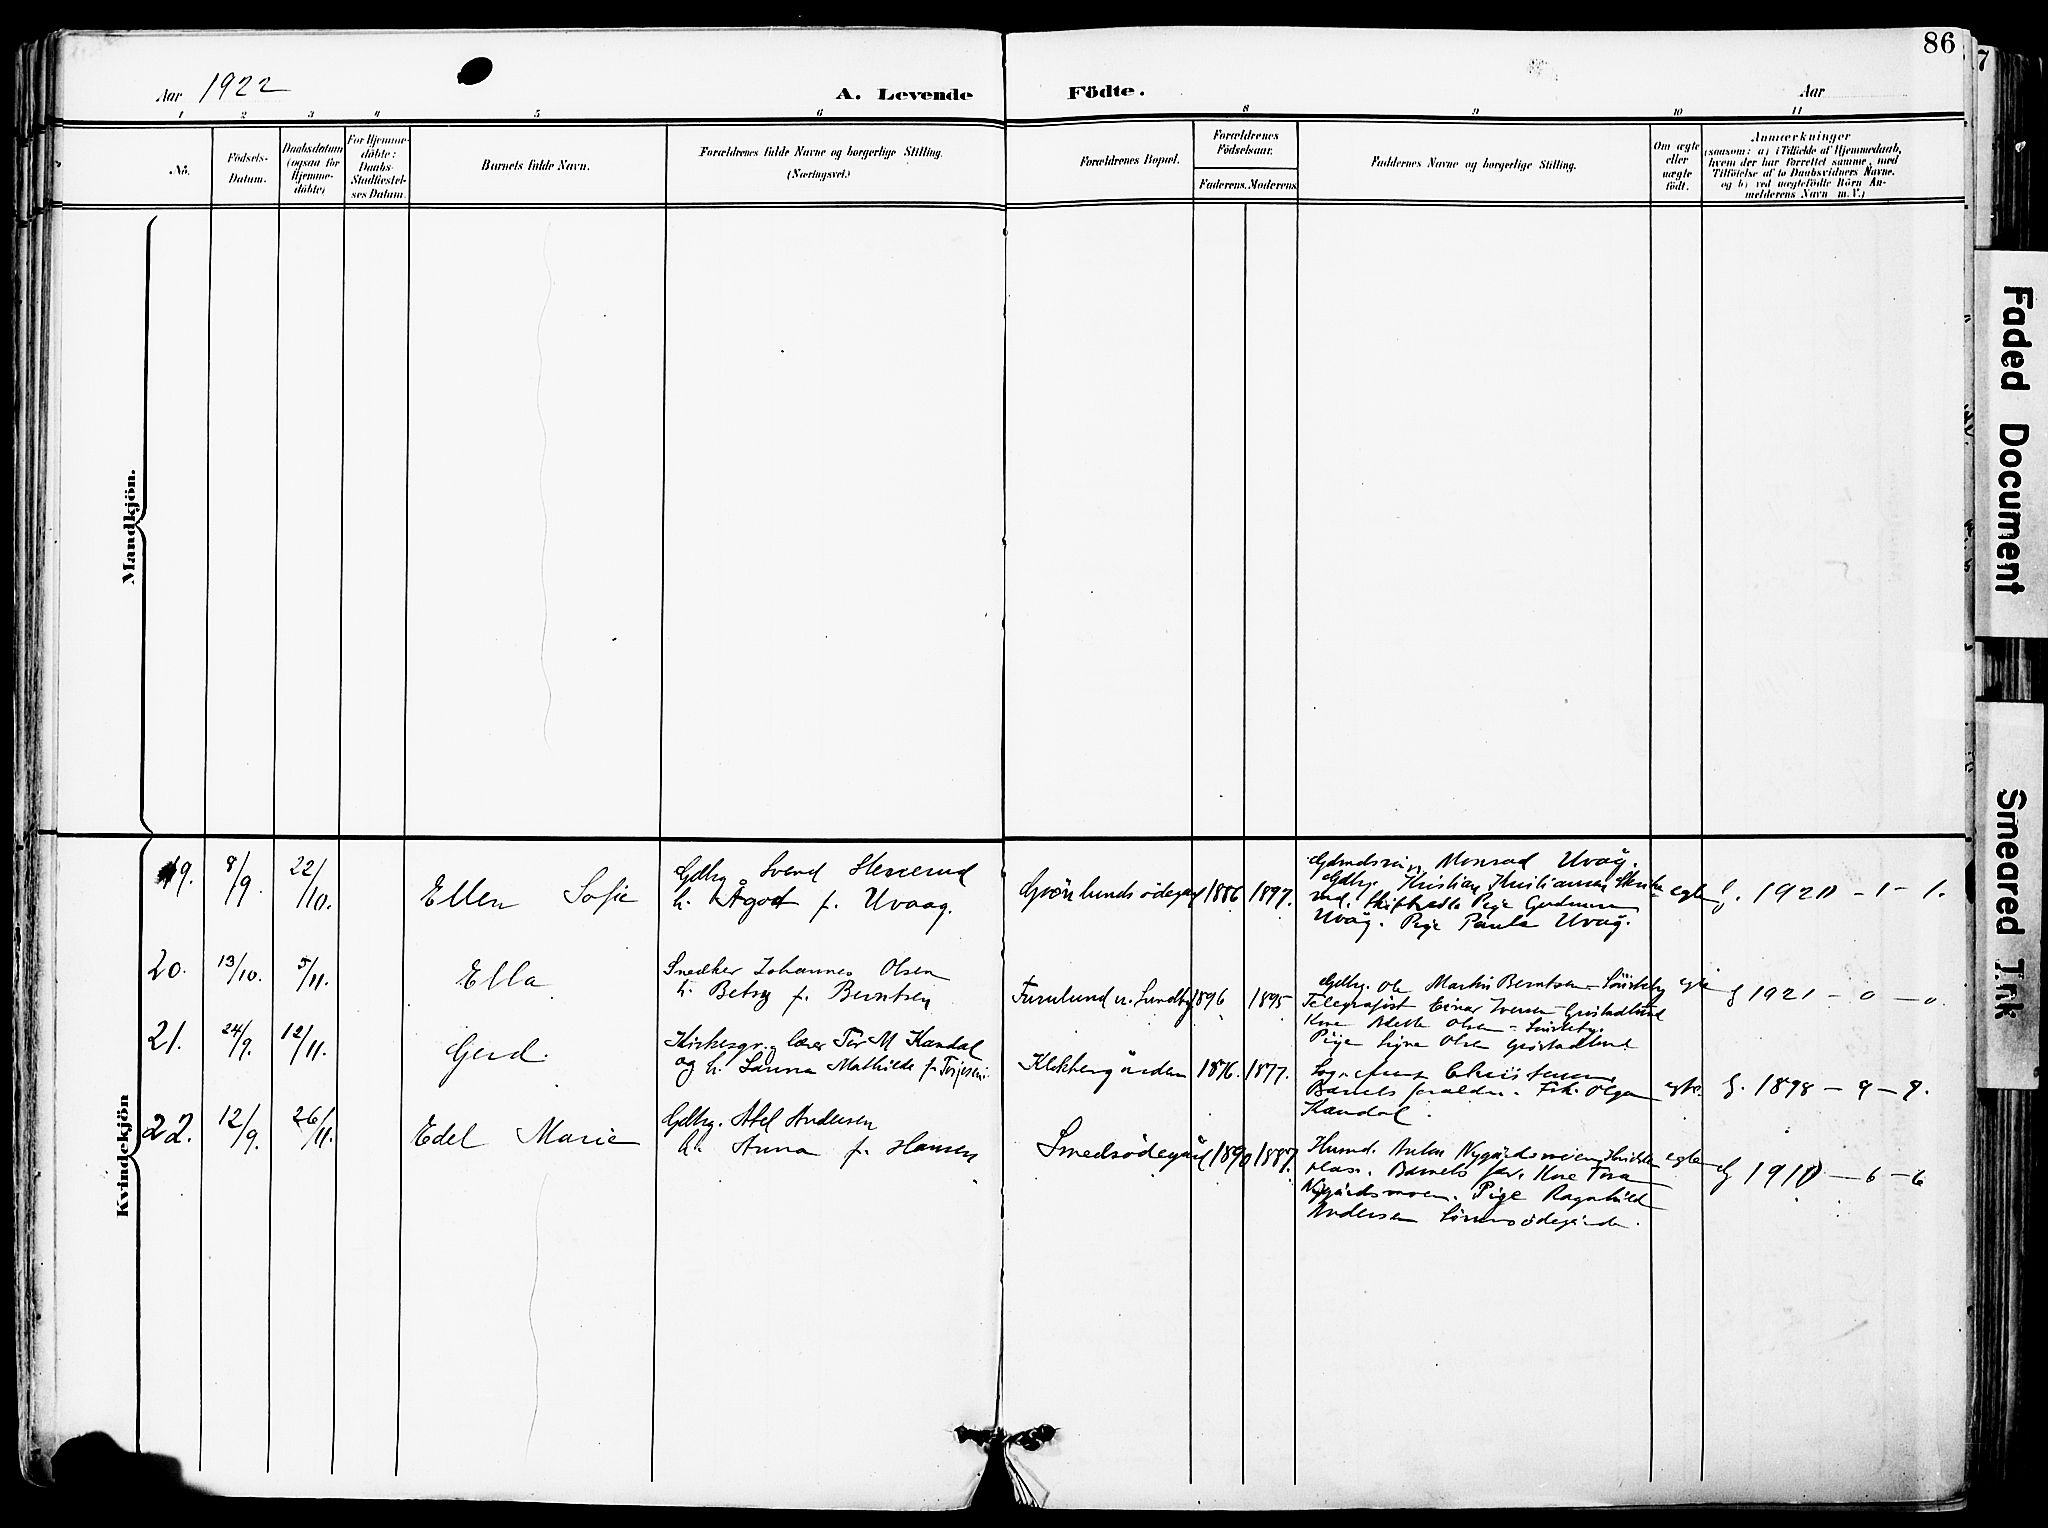 86
7
Aar 1922
A. Levende Födte.
Aar
1 2 3 4 5 6 8 9 10 11
Nö.
Födsels-
Datum.
Daabsdatum
(ogsaa for
Hjemme-
döbte)
For Hjemme-
döbte:
Daabs-
Stadfæstel-
ses Datum.
Barnets fulde Navn.
Forældrenes fulde Navne og borgerlige Stilling.
(Næringsvei.)
Forældrenes Bopæl.
Forældrenes
Födselsaar.
Faderens. Moderens.
Faddernes Navne og borgerlige Stilling.
Om ægte
eller
uægte
födt.
Anmærkninger
(saasom: a) i Tilfælde af Hjemmedaab,
hvem der har forrettet samme, med
Tilföielse af to Daabsvidners Navne.
og b) ved uægtefödte Börn An-
melderens Navn m.V.)
Mandkjön.
Kvindekjön
19. 8/9. 22/10. Ellen Sofie
Gdbr. Svend
h. Agot f. Uvaag.
Grönlundsödegård 1886 1897.
Monrad Uvåg.
Gdbr. Kristian Kristiansen
Pige Gudrun
Uvåg. Pige Paula Uvåg.
egte g. 1920 - 1 - 1.
20. 13/10. 5/11. Ella
Snedker Johannes Olsen
h. Betsy f. Berntsen
Furulund u. Lundby 1896 1895
Gdbr. Ole Martin Berntsen
Telegrafist Einar Iversen
Kone Olsen
Pige Signe Olsen
egte g 1921 - 0 - 0.
21. 24/9. 12/11. Gerd.
Kirkesgr. lærer Tor M Kandal
og h. Laura Mathilde f. Torjesen
Klokkergården 1876. 1877.
Barnets foraldre. Frk. Olga
Kandal.
egte. g. 1898 - 9 - 9.
22. 12/9. 26/11. Edel Marie
Gdbr. Axel Andersen
h. Anna f. Hansen
Smedsödegård 1890 1887.
Nygårdsmoen
Barnets far. Kone Tora
Nygårdsmoen. Pige Ragnhild
Andersen
egte g 1910 - 6 - 6
Faded Document
Smeared Ink